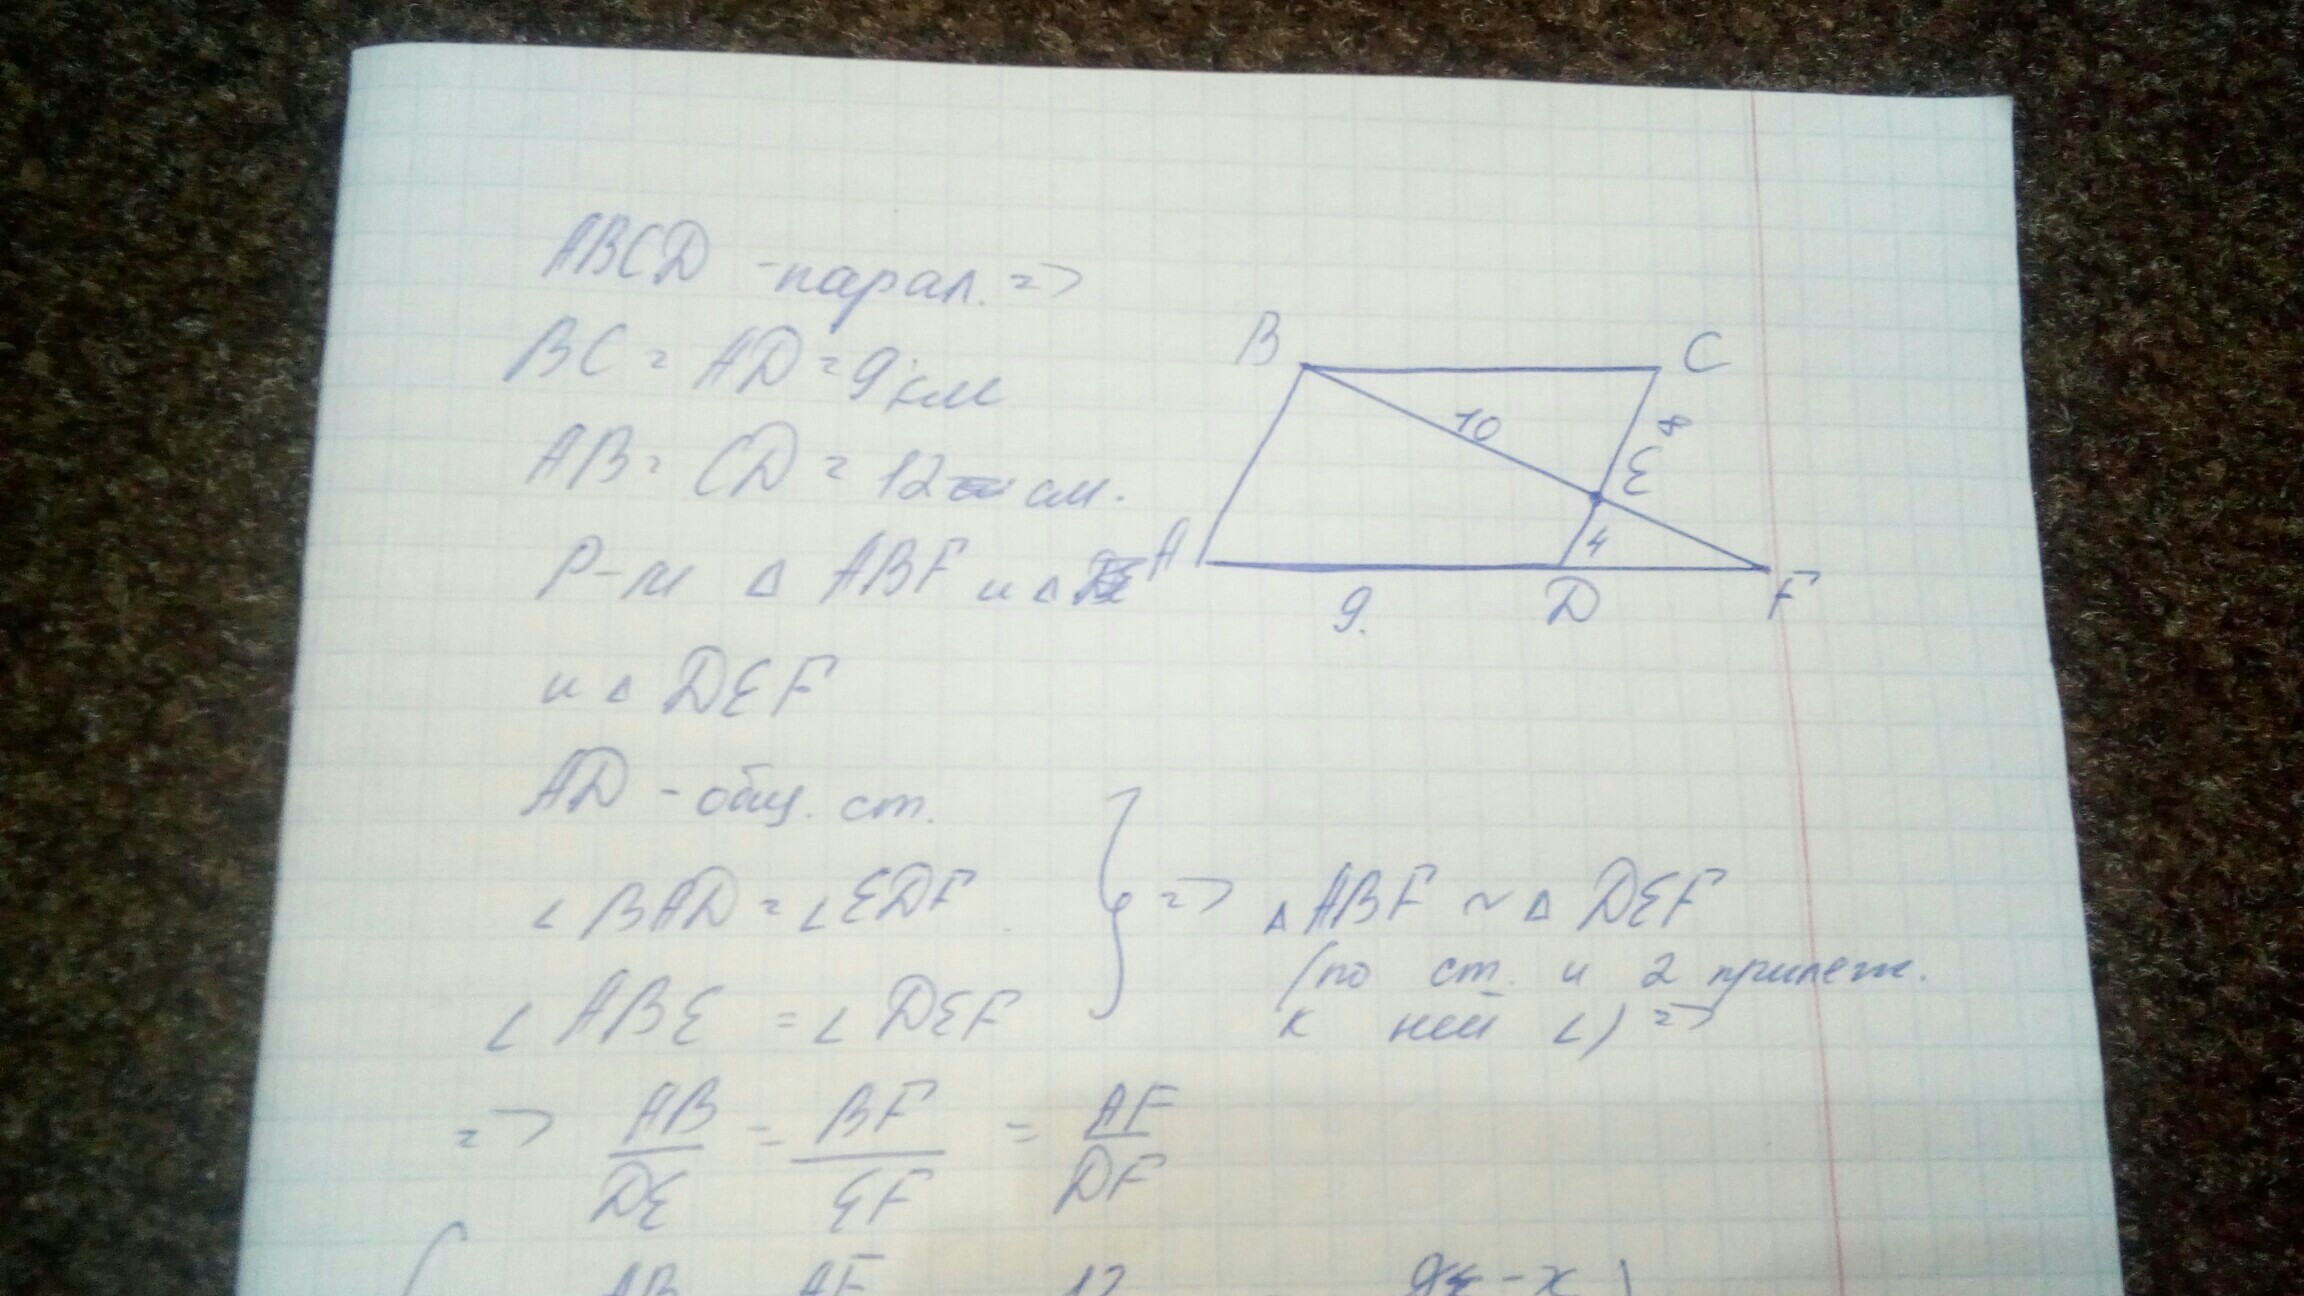 ABCD - парал. =>
BC = AD = 9 см
AB = CD = 12 см.
Р-м Δ ABF и Δ
и Δ DEF
AD - общ. ст.
∠ BAD = ∠ EDF
∠ ABE = ∠ DEF
=> Δ ABF ~ Δ DEF
(по ст. и 2 прилеж.
к ней ∠) =>
=> AB/DE = BF/EF = AF/DF
AB AF 12
B C
10 8
E
A 4
9. D F